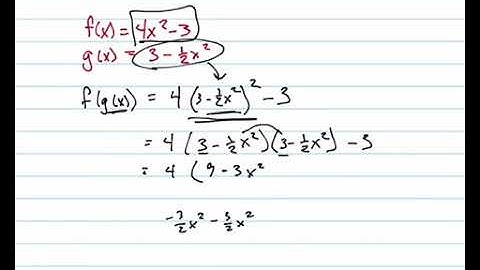 f(x) = 4x² - 3
g(x) = 3 - ½x²
f(g(x)) = 4(3 - ½x²)² - 3
= 4(3 - ½x²)(3 - ½x²) - 3
= 4(9 - 3x²
-3/2x² - 3/2x²